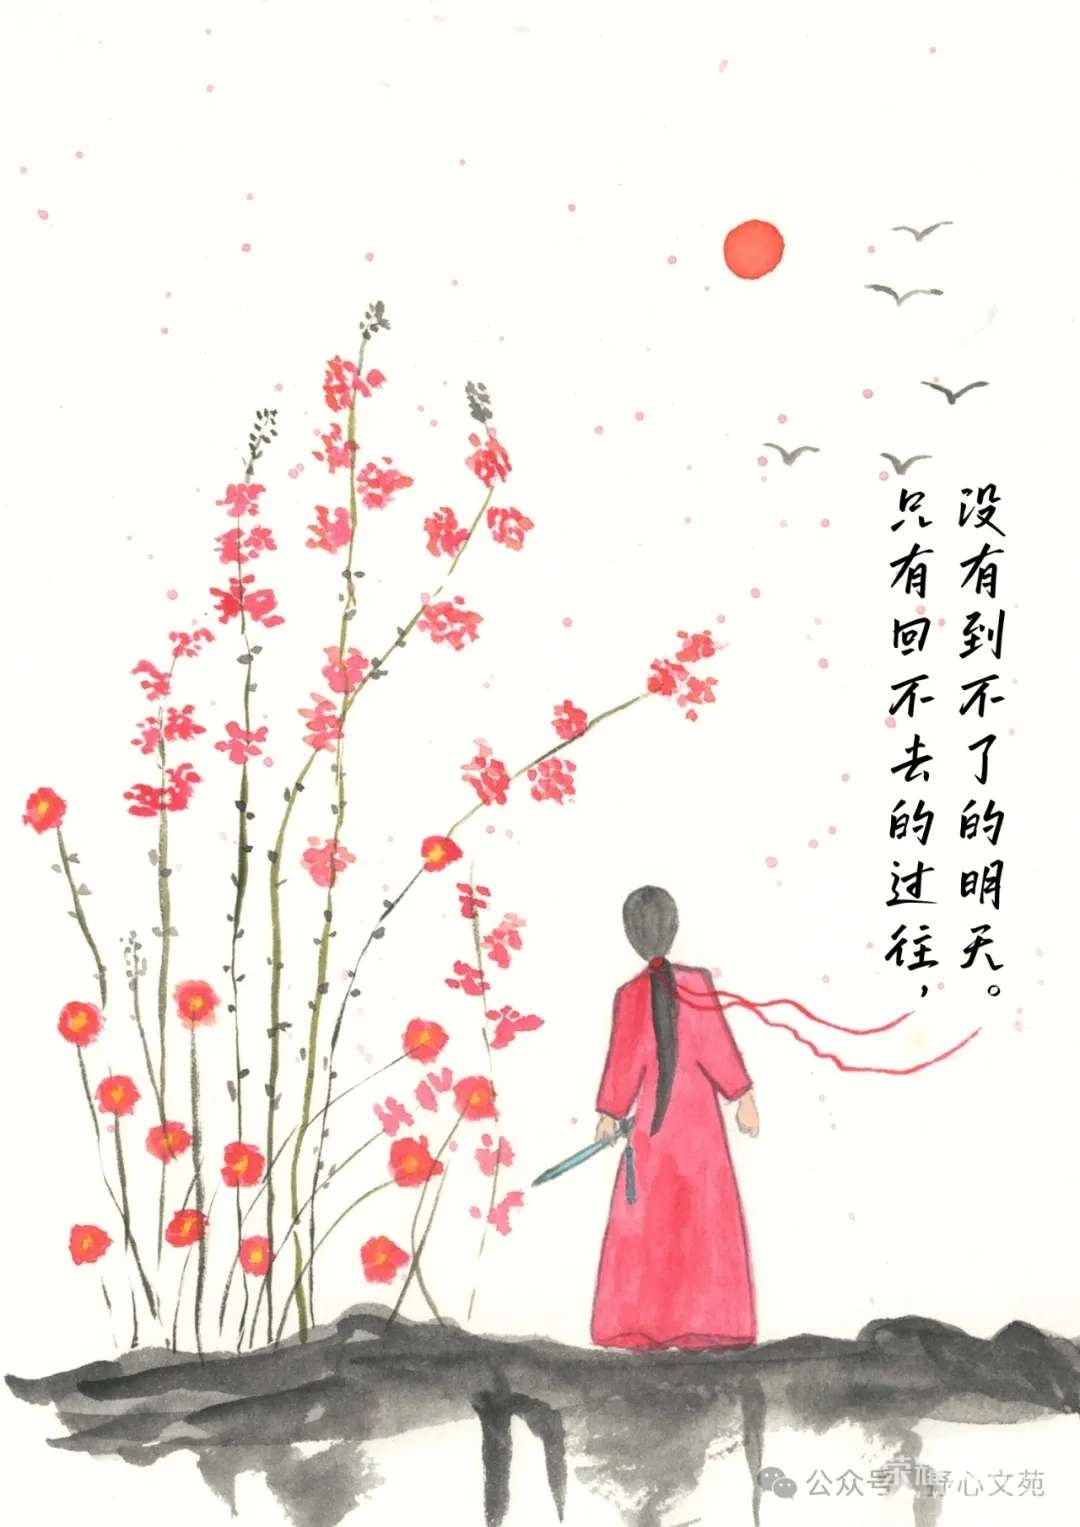 只有回不去的过往，
没有到不了的明天。
公众号 心文苑